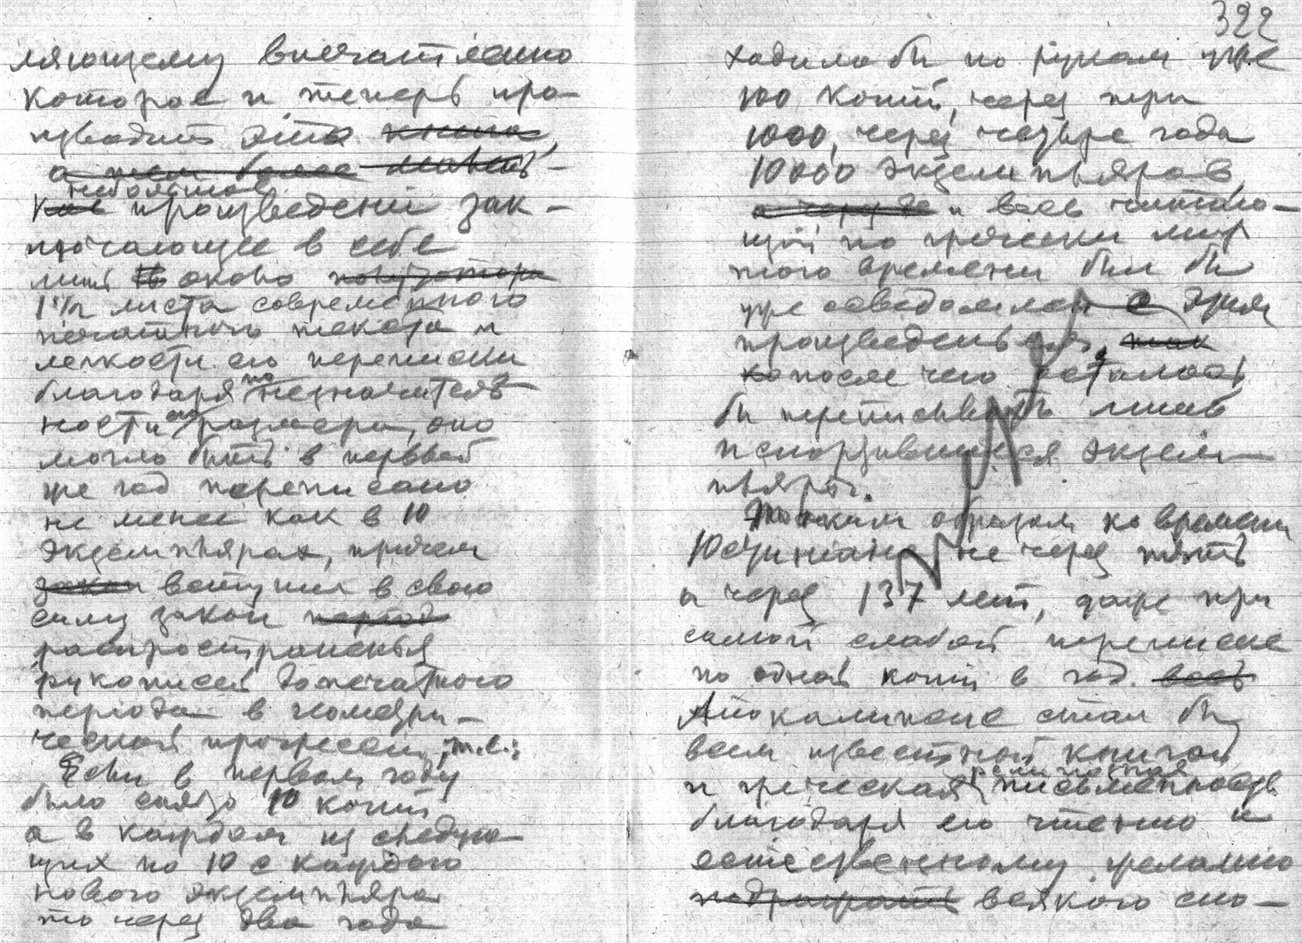 ляющему впечатлению
которое и теперь про-
изводит это книга,
а тем более
небольшое
как произведение зак-
лючающее в себе
лишь около
1 1/2 листа современного
печатного текста и
легкости его переписки
благодаря по незначитель
ности его размера, оно
могло быть в первый
же год переписано
не менее как в 10
экземплярах, причем
закон вступил в свою
силу закон период
распространенья
рукописей допечатного
периода в геометри-
ческой прогрессии, т.е.:
Если в первом году
было снято 10 копий
а в каждом из следую-
щих по 10 с каждого
нового экземпляра
то через два года
322
ходило бы по рукам уже
100 копий, через три
1000, через четыре года
10000 экземпляров
а через и весь читаю-
щий по гречески мир
того времени был бы
уже осведомлен с этим
произведеньем, так
после чего осталось
бы переписывать лишь
испортившиеся экзем-
пляры.
Таким образом ко времени
Юстиниана не через пять
а через 137 лет, даже при
самой слабой переписке
по одной копии в год весь
Апокалипсис стал бы
всем известной книгой
и греческая письменность
благодаря его чтению и
естественному желанию
подражать всякого спо-